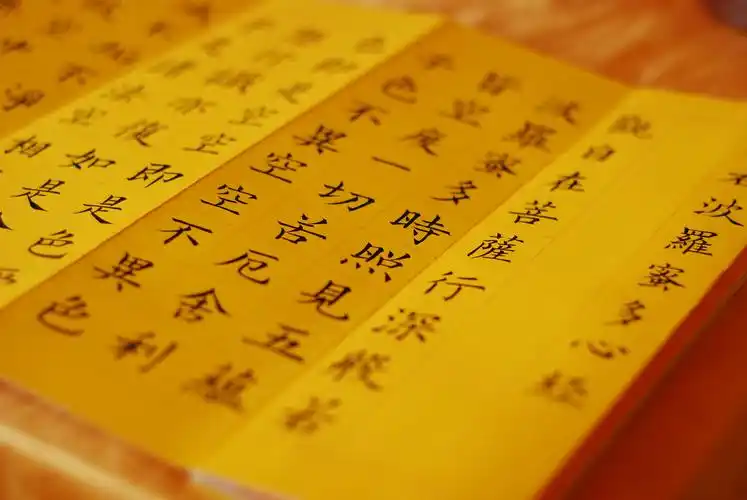 波羅蜜多心經
觀自在菩薩行深般若
波羅蜜多時照見五蘊
皆空度一切苦厄舍利
子色不異空空不異色
色即是空空即是色
行識亦復如是
法空相
不淨